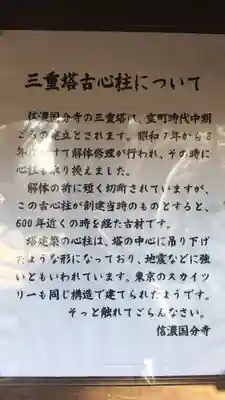 三重塔古心柱について
信濃国分寺の三重塔は、室町時代中期
ごろの建立とされます。昭和7年から8
年にかけて解体修理が行われ、その時に
心柱も取り換えました。
解体の折に短く切断されていますが、
この古心柱が創建当時のものとすると、
600年近くの時を経た古材です。
塔建築の心柱は、塔の中心に吊り下げ
たような形になっており、地震などに強
いともいわれています。東京のスカイツ
リーも同じ構造で建てられたようです。
そっと触れてごらんなさい。
信濃国分寺